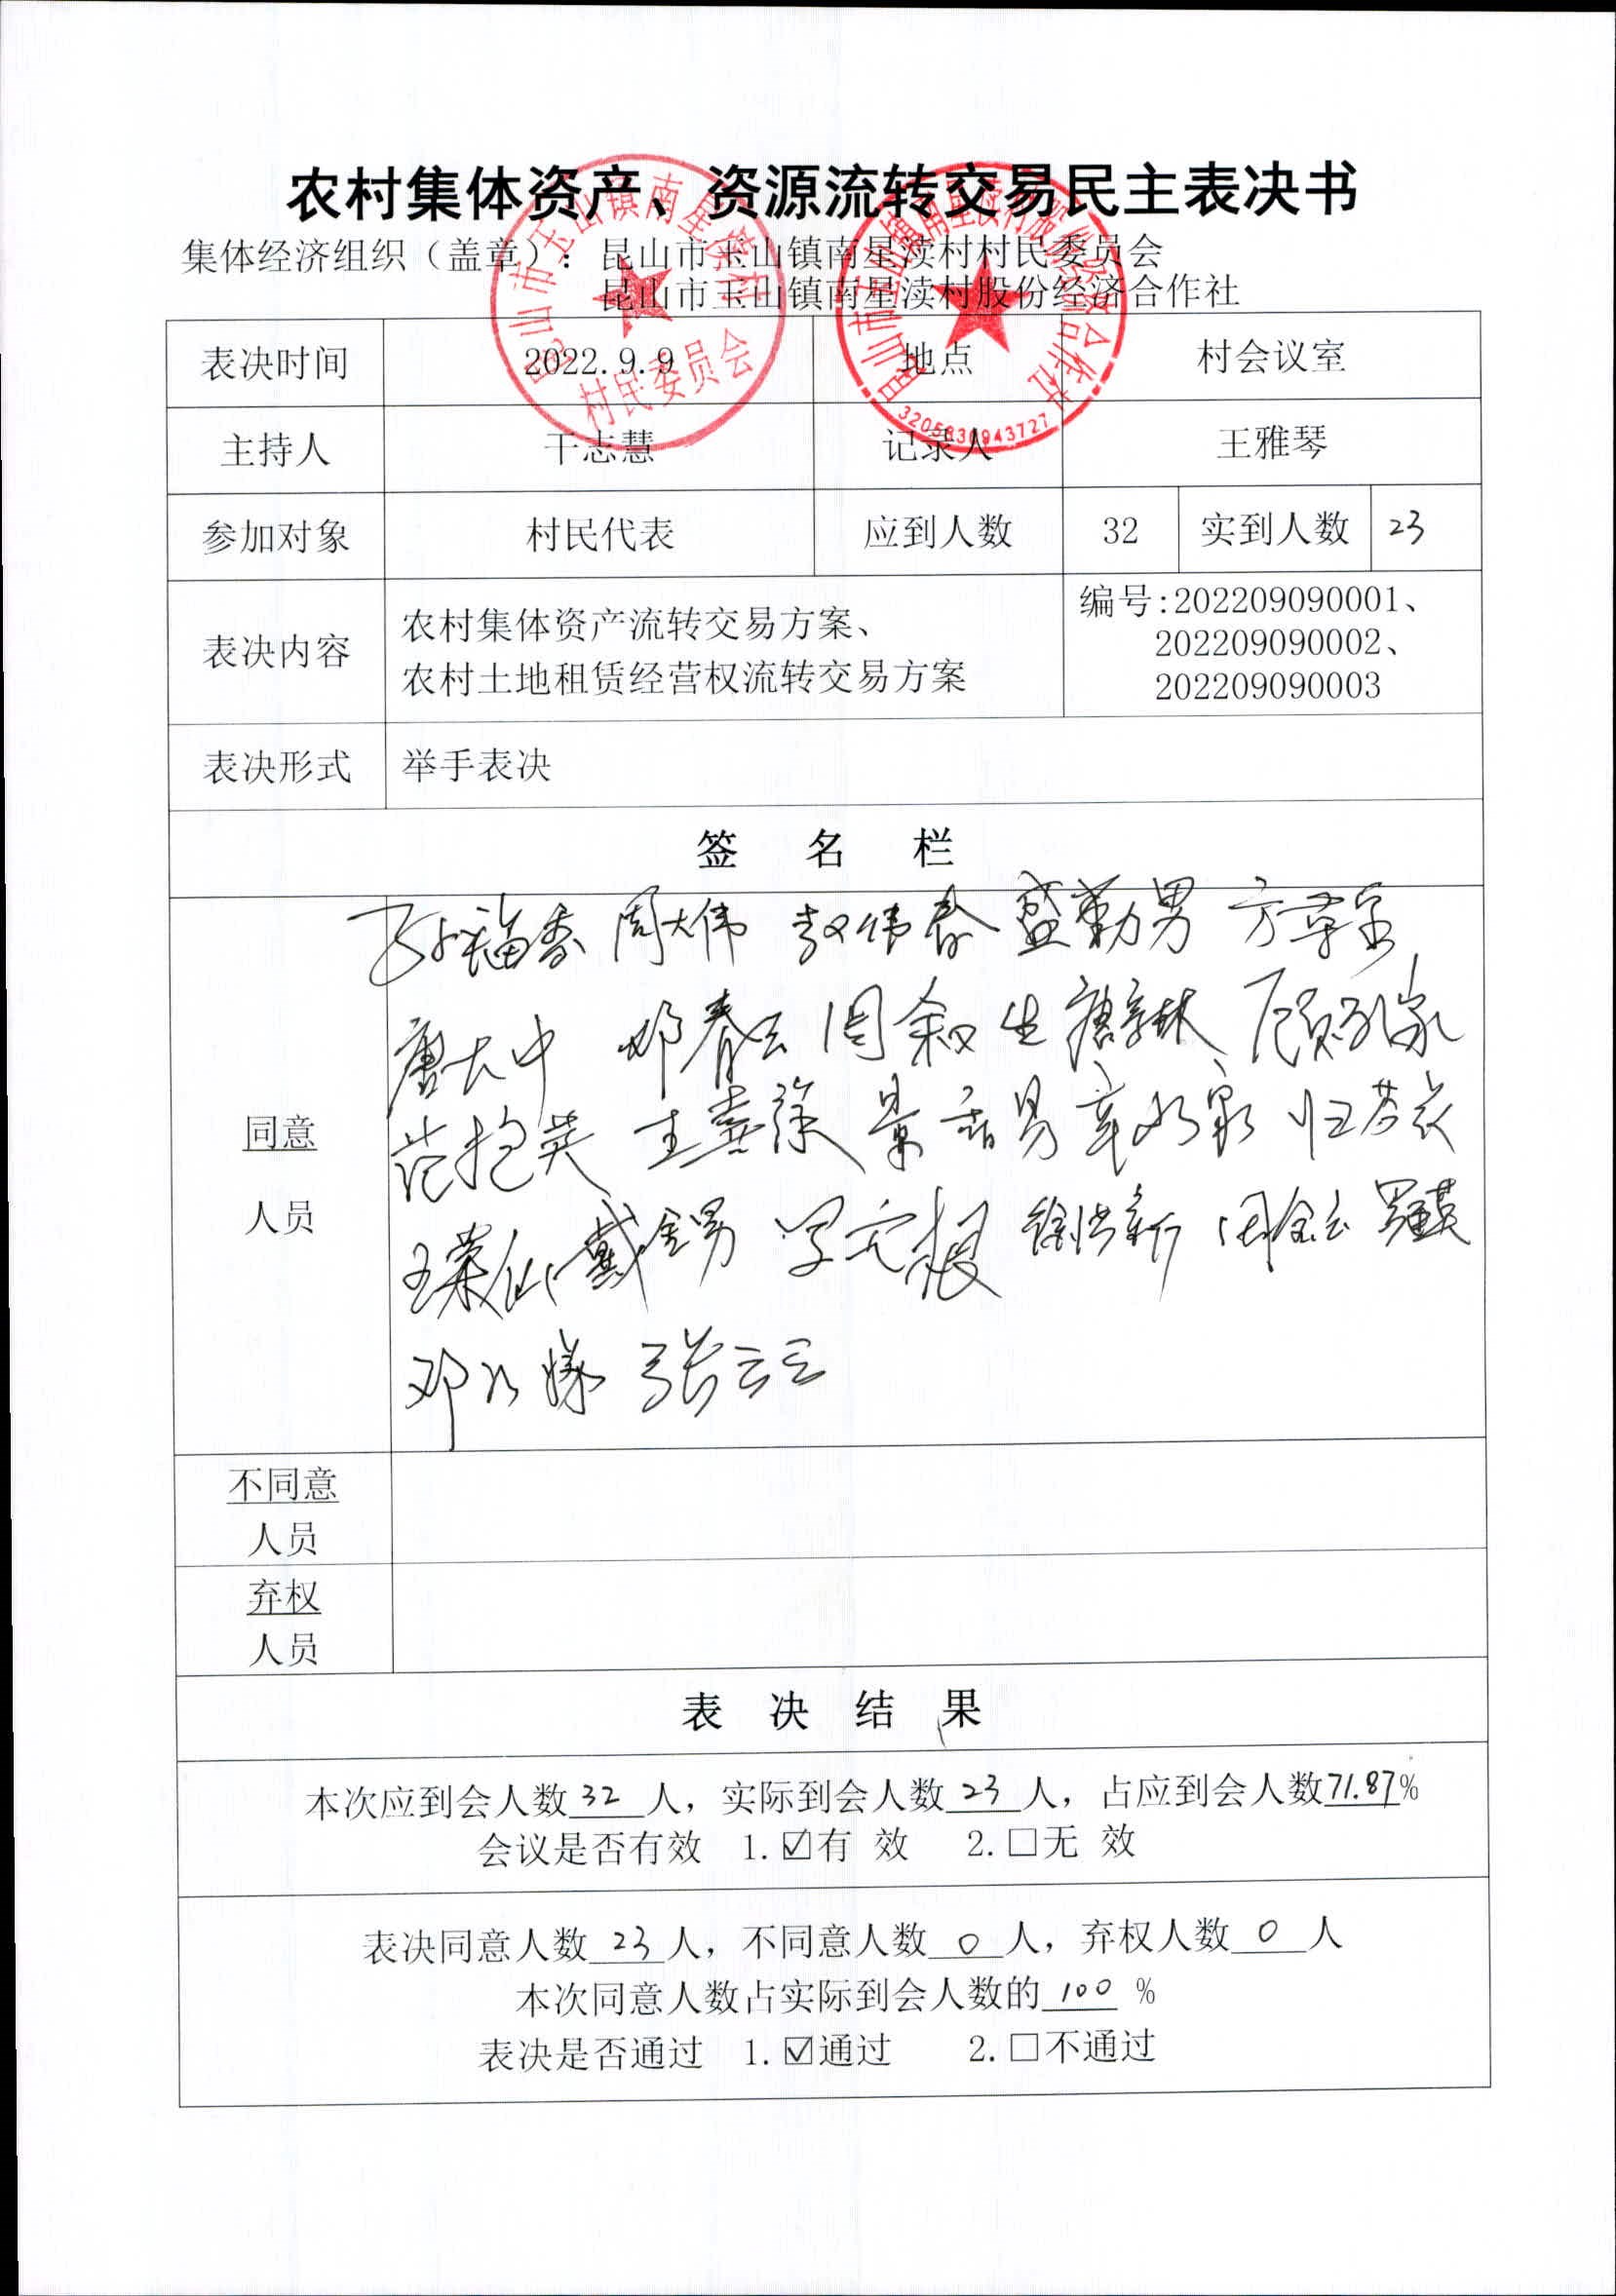 农村集体资产、资源流转交易民主表决书
集体经济组织（盖章）：昆山市玉山镇南星渎村村民委员会
昆山市玉山镇南星渎村股份经济合作社
昆山市玉山镇南星渎村
村民委员会
昆山市玉山镇南星渎村股份经济合作社
3205830943727
表决时间 2022.9.9 地点 村会议室
主持人 干志慧 记录人 王雅琴
参加对象 村民代表 应到人数 32 实到人数 23
表决内容
农村集体资产流转交易方案、
农村土地租赁经营权流转交易方案
编号:202209090001、
202209090002、
202209090003
表决形式 举手表决
签 名 栏
同意
人员
孙福香 周大伟 赵伟春 盛勤男
唐大中 邓春云 周叙生 唐 林 顾 家
范抱英 王 章水泉 归芬
王荣仙 戴金男 根 徐洪新 周金
邓 张云
不同意
人员
弃权
人员
表 决 结 果
本次应到会人数 32 人，实际到会人数 23 人，占应到会人数71.87%
会议是否有效 1.☑有 效 2.□无 效
表决同意人数 23 人，不同意人数 0 人，弃权人数 0 人
本次同意人数占实际到会人数的 100 %
表决是否通过 1.☑通过 2.□不通过